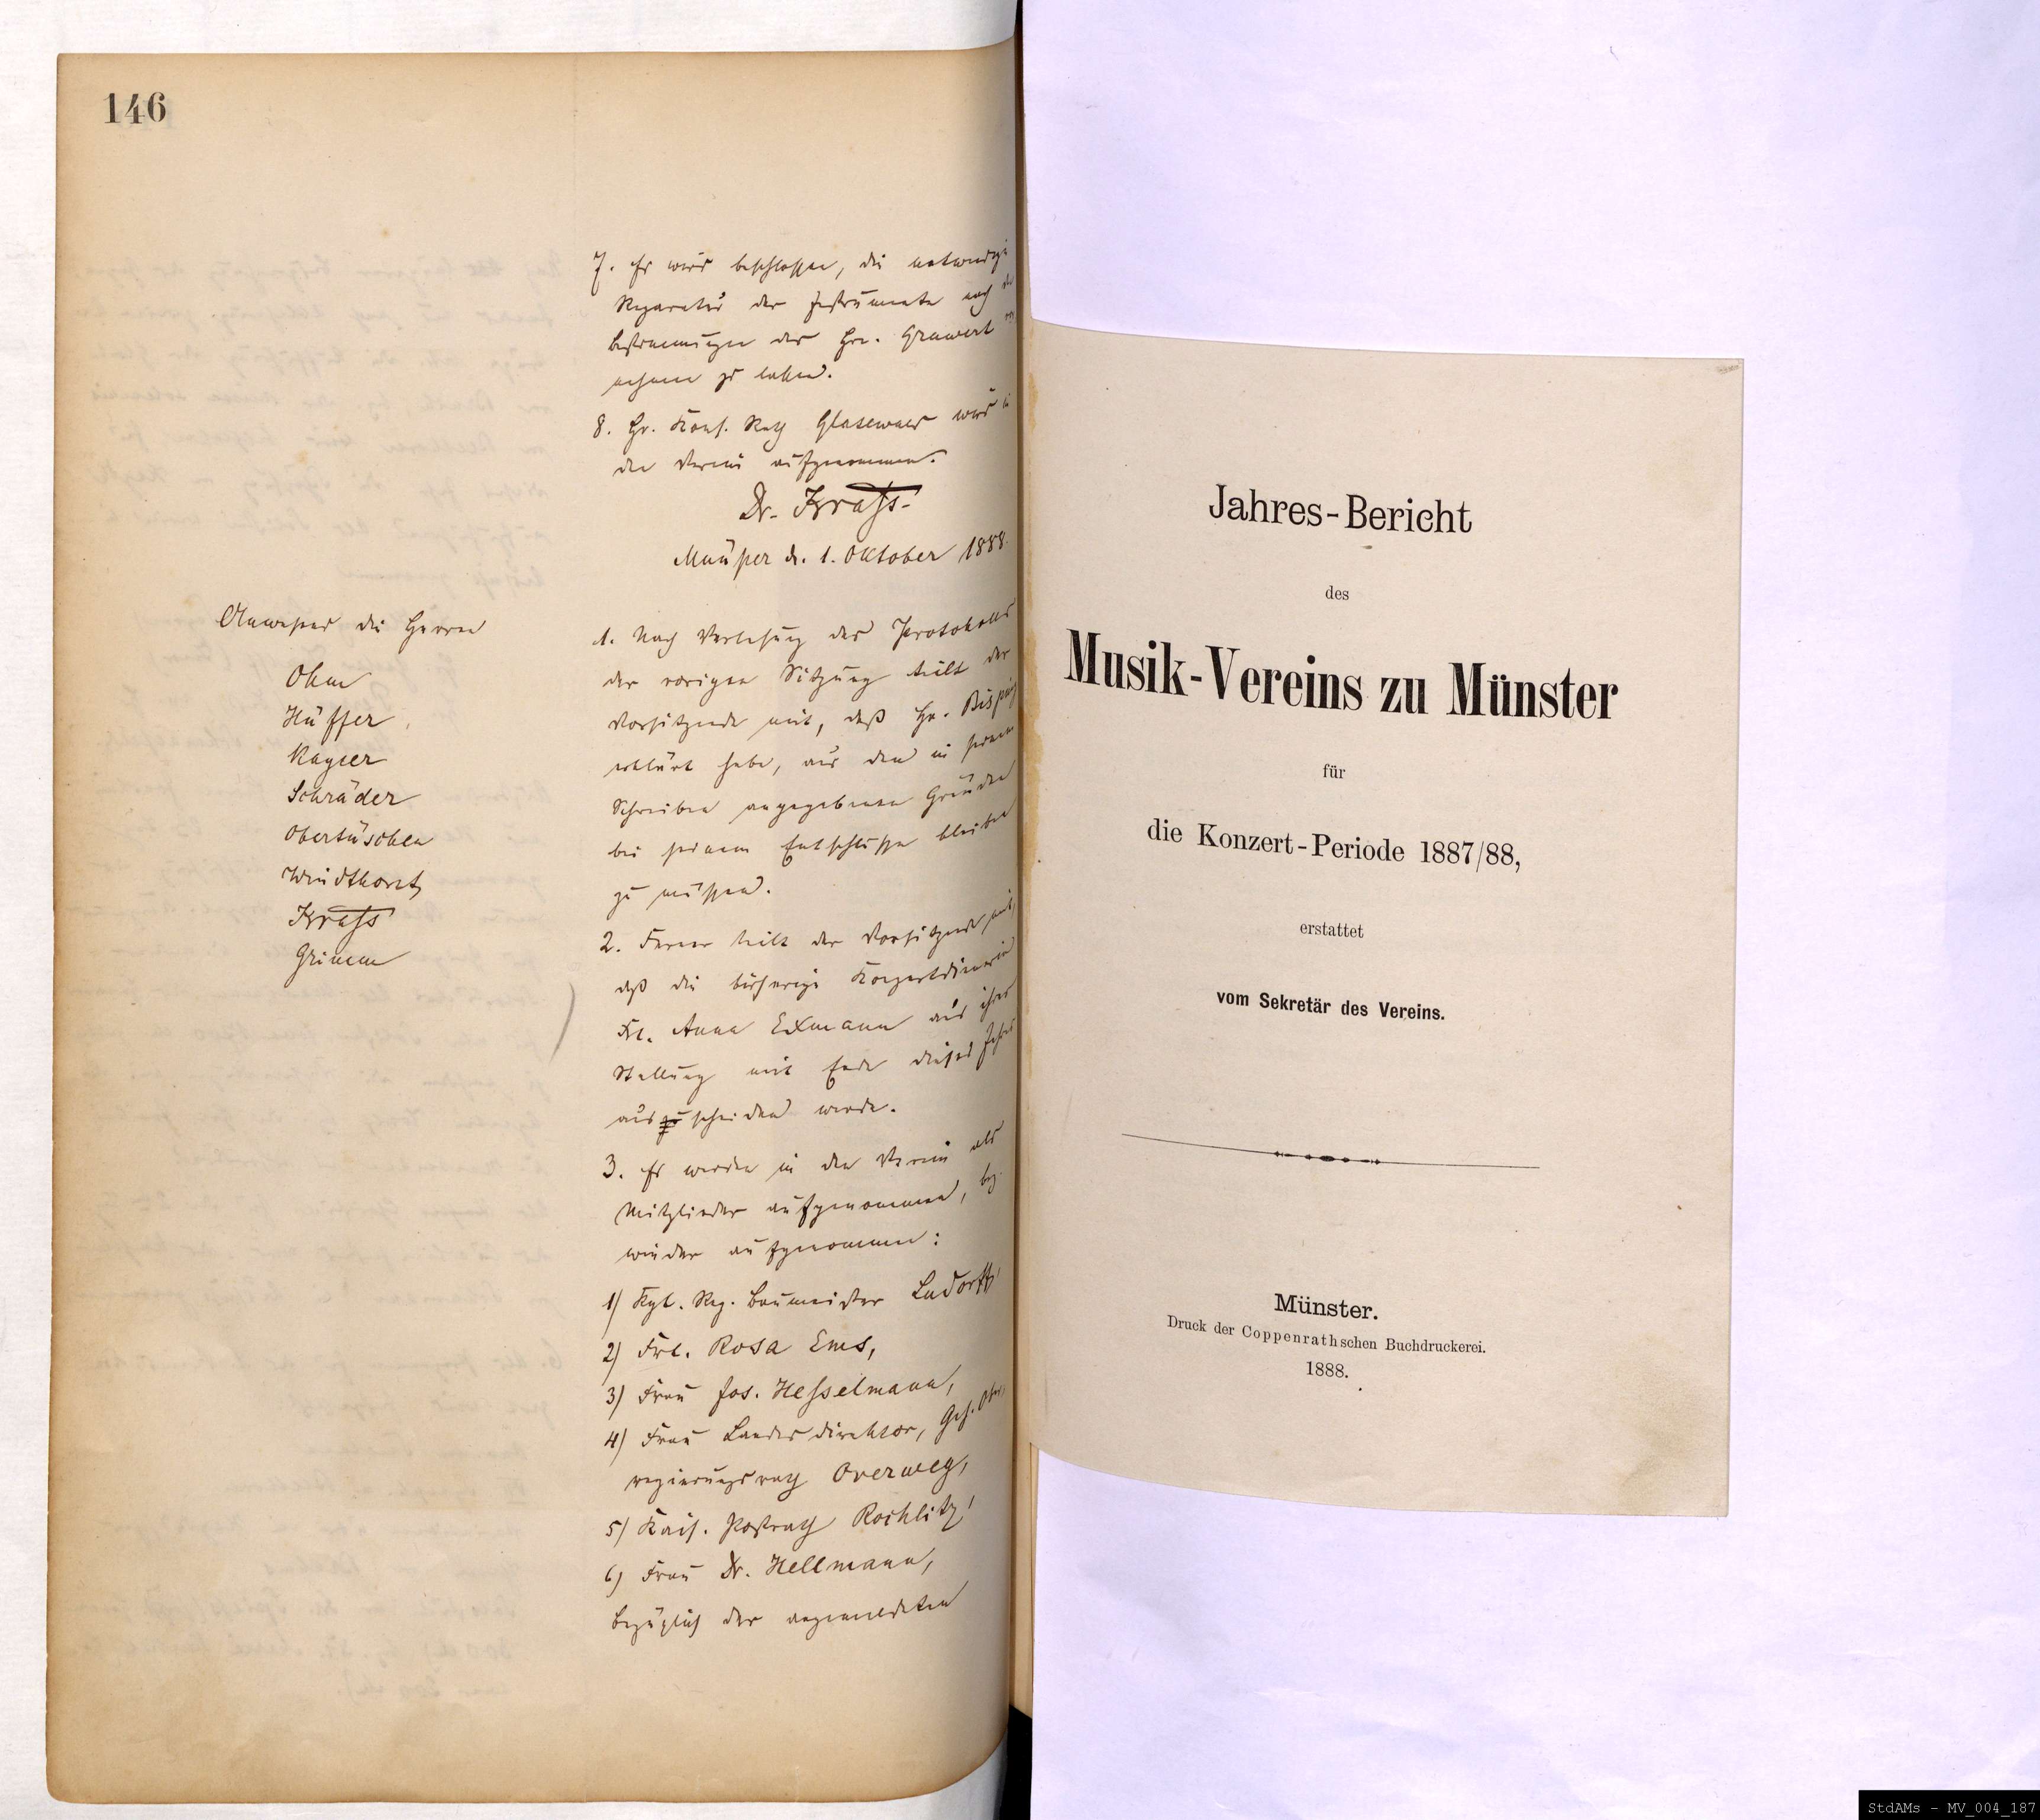 146
7. Es wird beschlossen, die notwendige
Reparatur der Instrumente nach den
Bestimmungen des Hrn. Grawert vor-
nehmen zu lassen.
8. Hr. Kons. Rath Glasewald wird in
den Verein aufgenommen.
Dr. Krass.
Münster d. 1. Oktober 1888.
Anwesend die Herren
Ohm
Hüffer
Kayser
Schräder
Obertüschen
Windthorst
Krass
Grimm
1. Nach Verlesung des Protokolls
der vorigen Sitzung teilt der
Vorsitzende mit, daß Hr. Bisping
erklärt habe, aus den in seinem
Schreiben angegebenen Gründen
bei seinem Entschlusse bleiben
zu müssen.
2. Ferner teilt der Vorsitzende mit,
daß die bisherige Konzertdienerin
Frl. Anna Exmann aus ihrer
Stellung mit Ende dieses Jahres
ausscheiden werde.
3. Es werden in den Verein als
Mitglieder aufgenommen, bez.
wieder aufgenommen:
1) Kgl. Reg. Baumeister Ludorff,
2) Frl. Rosa Ems,
3) Frau Jos. Hesselmann,
4) Frau Landesdirektor, Geh. Ober-
regierungsrath Overweg,
5) Kais. Postrath Rochlitz,
6) Frau Dr. Hellmann,
Bezüglich der angemeldeten
Jahres-Bericht
des
Musik-Vereins zu Münster
für
die Konzert-Periode 1887/88,
erstattet
vom Sekretär des Vereins.
Münster.
Druck der Coppenrathschen Buchdruckerei.
1888.
StdAMs - MV_004_187